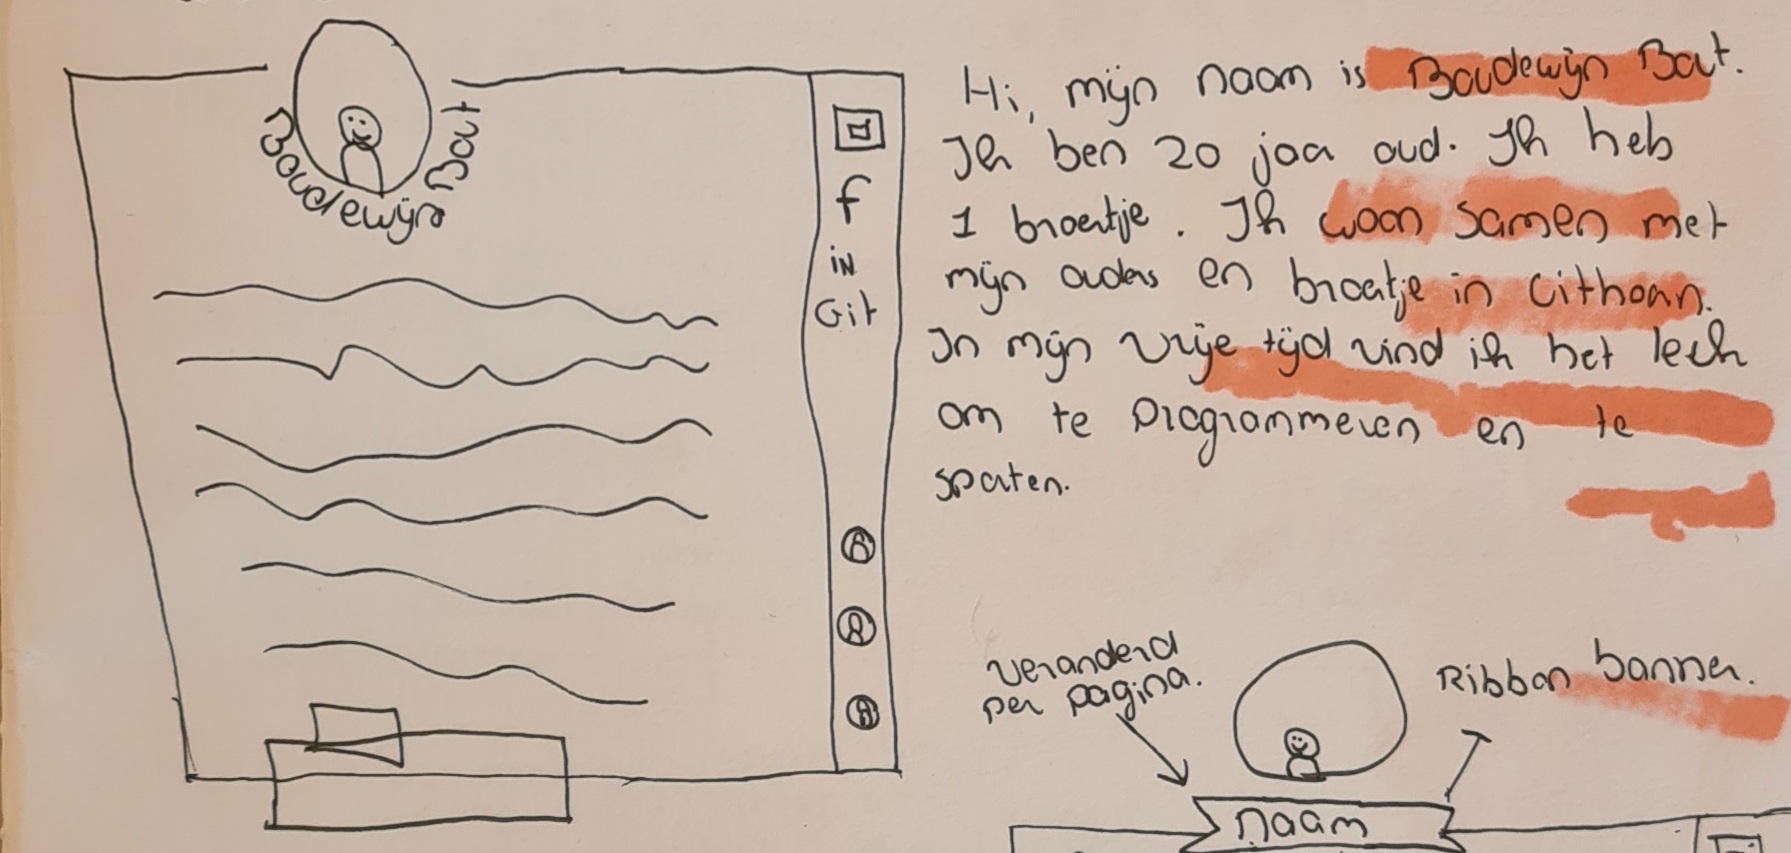 Boudewijn Bout
f
in
Git
Hi, mijn naam is Boudewijn Bout.
Ik ben 20 jaar oud. Ik heb
1 broertje. Ik woon samen met
mijn ouders en broertje in Githoorn.
In mijn vrije tijd vind ik het leuk
om te programmeren en te
sporten.
veranderd
per pagina.
Ribbon banner.
naam